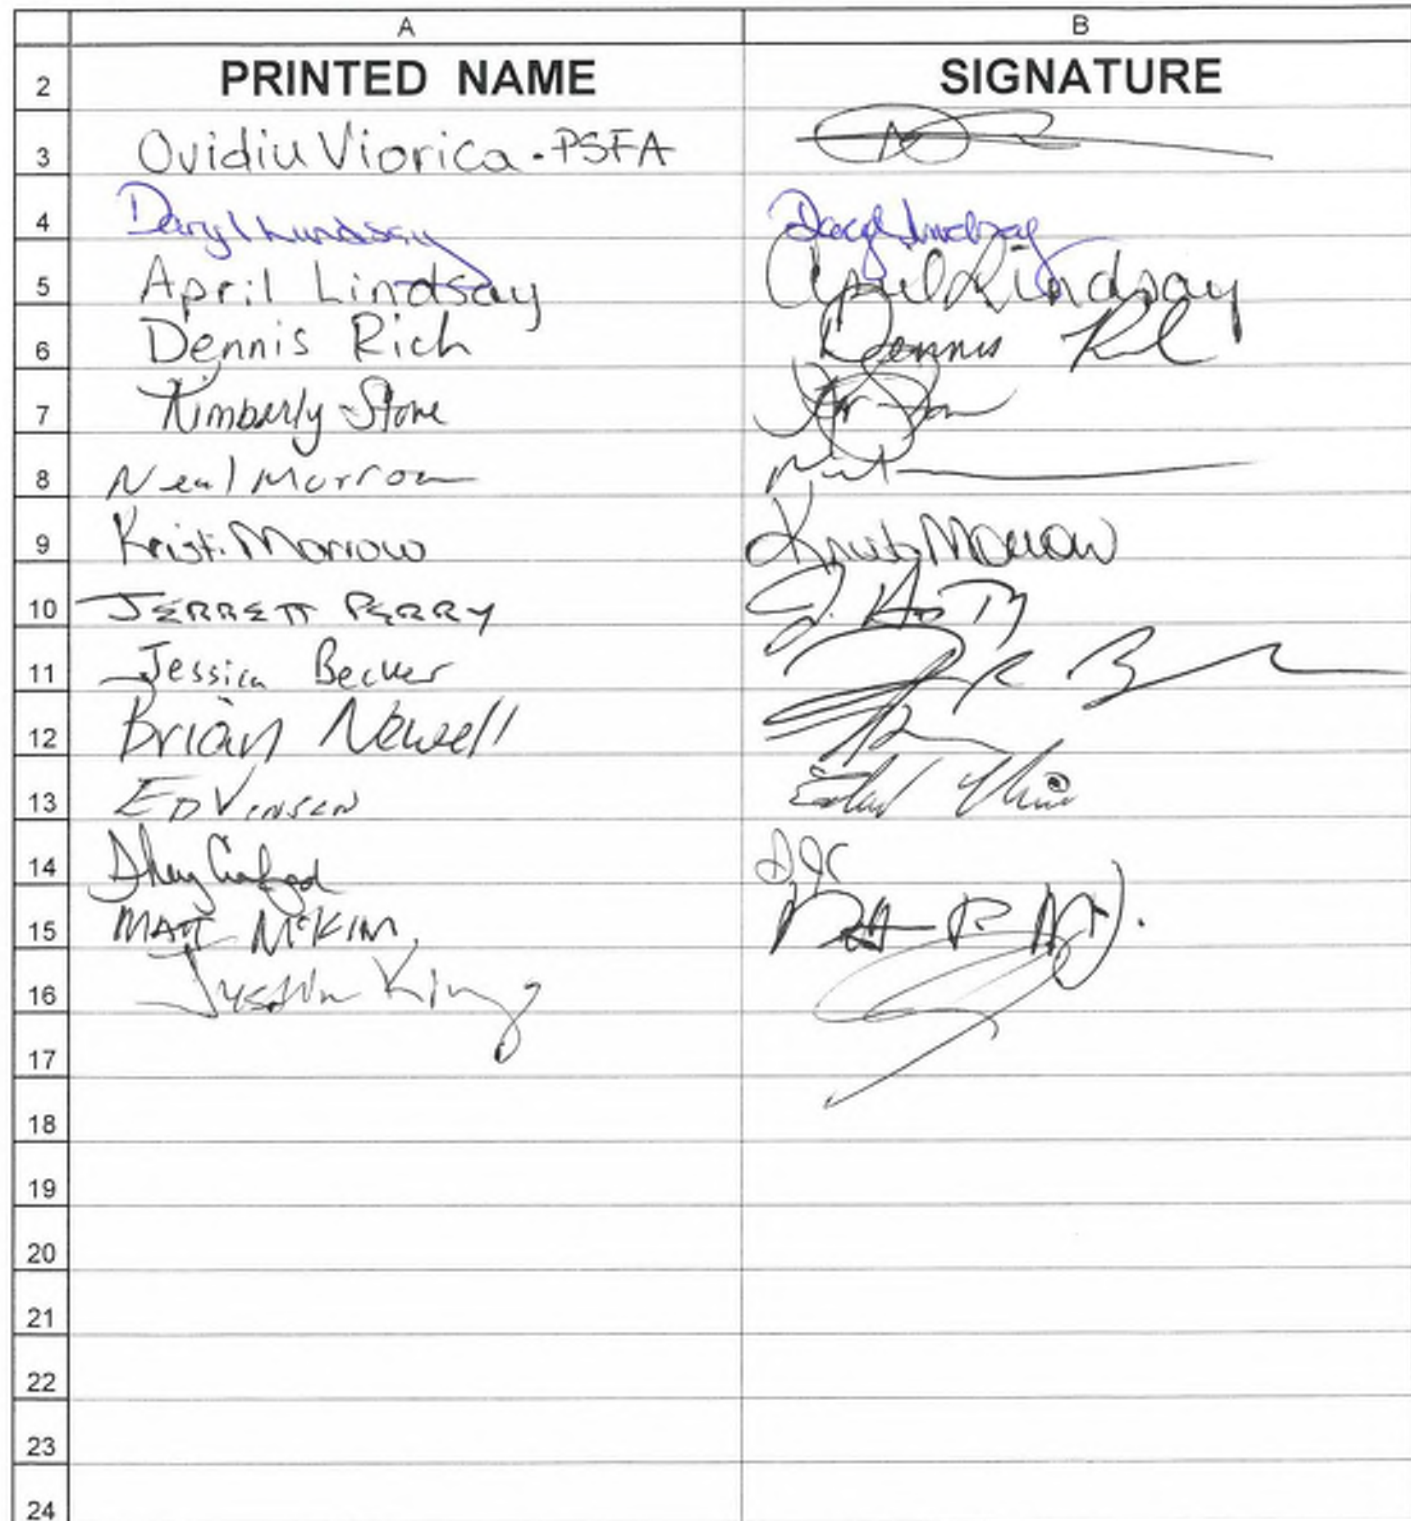 A B
2 PRINTED NAME SIGNATURE
3 Ovidiu Viorica - PSFA
4 Daryl Lindsay Daryl Lindsay
5 April Lindsay April Lindsay
6 Dennis Rich Dennis Rich
7 Kimberly Stone
8 Neal Morrow
9 Kristi Morrow Kristi Morrow
10 JERRETT PERRY
11 Jessica Becker
12 Brian Newell
13 ED VINSON
14
15 MATT McKIM
16 Justin King
17
18
19
20
21
22
23
24